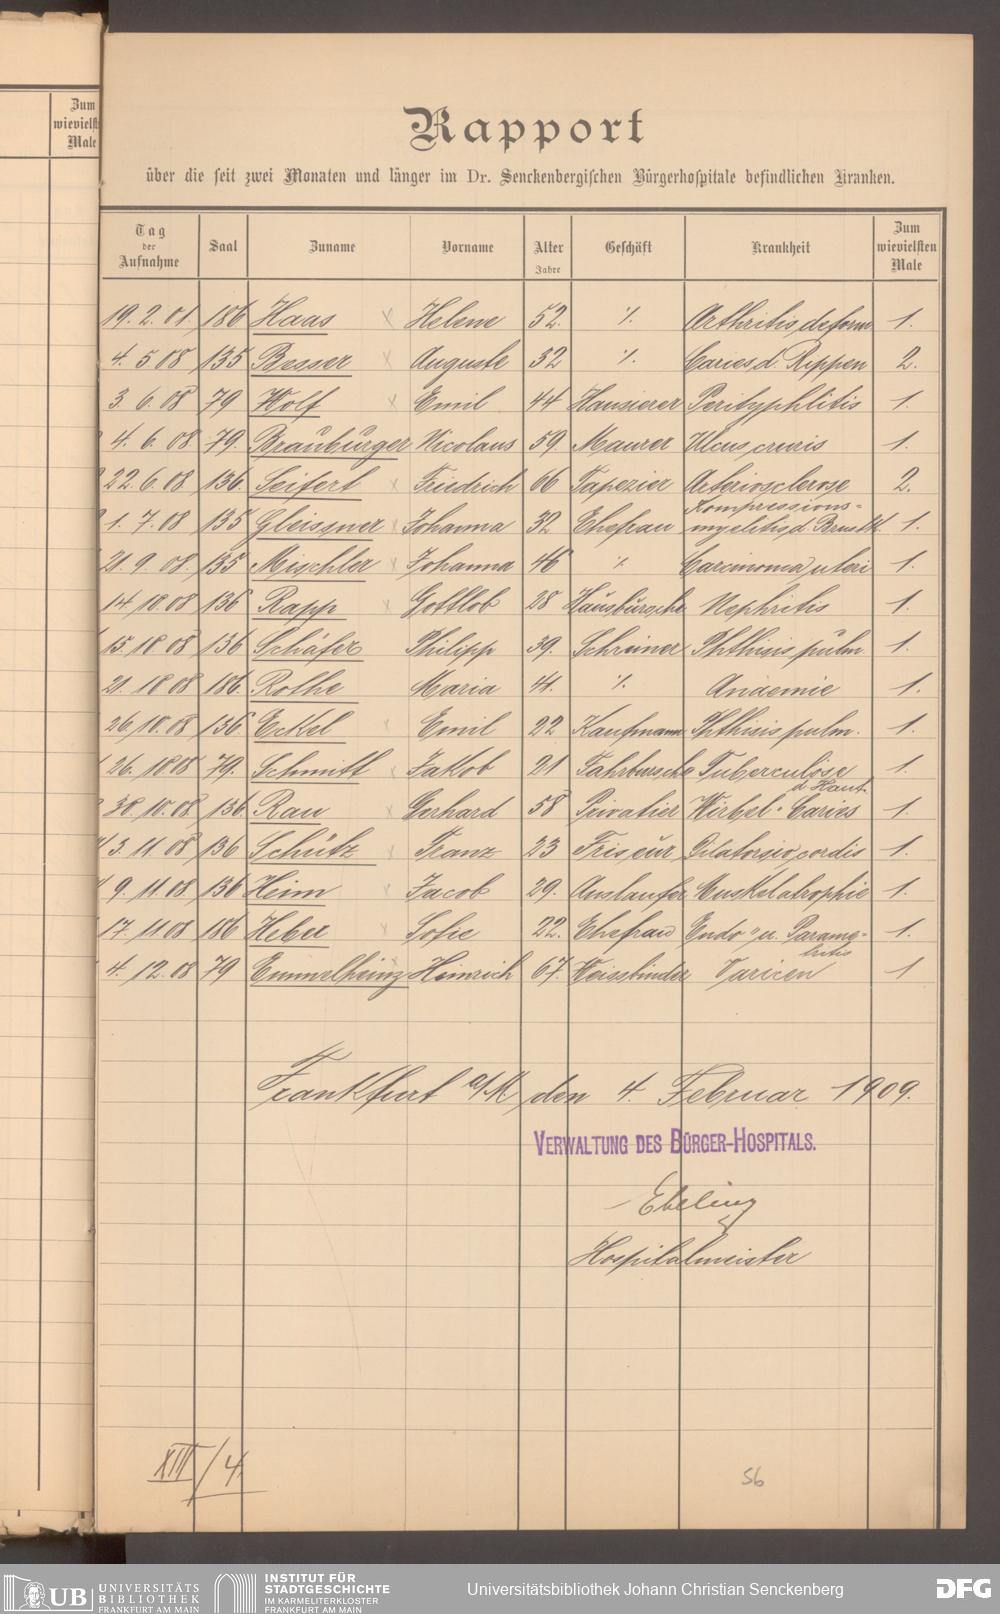 Zum
wievielsten
Male
Rapport
über die seit zwei Monaten und länger im Dr. Senckenbergischen Bürgerhospitale befindlichen Kranken.
Tag der Aufnahme Saal Zuname Vorname Alter Jahre Geschäft Krankheit Zum wievielsten Male
19. 2. 01 186 Haas Helene 52. ./. Arthritis deform 1.
4. 5 08 135 Besser Auguste 52 ./. Caries d. Rippen 2.
3. 6. 08 79 Wolf Emil 44 Hausierer Perityphlitis 1.
4. 6. 08 79. Braunburger Nicolaus 59. Maurer Ulcus cruris 1.
22. 6. 08 136. Seifert Friedrich 66 Tapezier Arteriosclerose 2.
1. 7. 08 135 Gleissner Johanna 32 Ehefrau Kompressions-
myelitis d. Brustk. 1.
21. 9. 08. 135 Mischler Johanna 46 ./. Carcinoma uteri 1.
14. 10. 08 136 Rapp Gottlob 28 Hausbursche Nephritis 1.
15. 10 08 136 Schäfer Philipp 39. Schreiner Phthisis pulm 1.
21. 10 08 186. Rothe Maria 41. ./. Anaemie 1.
26. 10. 08 136. Eckel Emil 22 Kaufmann Phthisis pulm. 1.
26. 10 08 79. Schmitt Jakob 21 Fahrbursche Tuberculose
d. Haut. 1.
30. 10. 08. 136. Rau Gerhard 58 Privatier Wirbel-Caries 1.
3. 11. 08 136 Schütz Franz 23 Friseur Dilatorsio cordis 1.
9. 11. 08 136 Heim Jacob 29. Auslaufer Muskelatrophie 1.
17. 11. 08 186 Heber Sofie 22. Ehefrau Endo- u. Parame-
tritis 1.
4. 12. 08 79 Emmelheinz Heinrich 67. Weissbinder Varicen 1
Frankfurt a/M. den 4. Februar 1909.
VERWALTUNG DES BÜRGER-HOSPITALS.
Ebeling
Hospitalmeister
XIII/4.
56
UB UNIVERSITÄTS
BIBLIOTHEK
FRANKFURT AM MAIN
INSTITUT FÜR
STADTGESCHICHTE
IM KARMELITERKLOSTER
FRANKFURT AM MAIN
Universitätsbibliothek Johann Christian Senckenberg
DFG